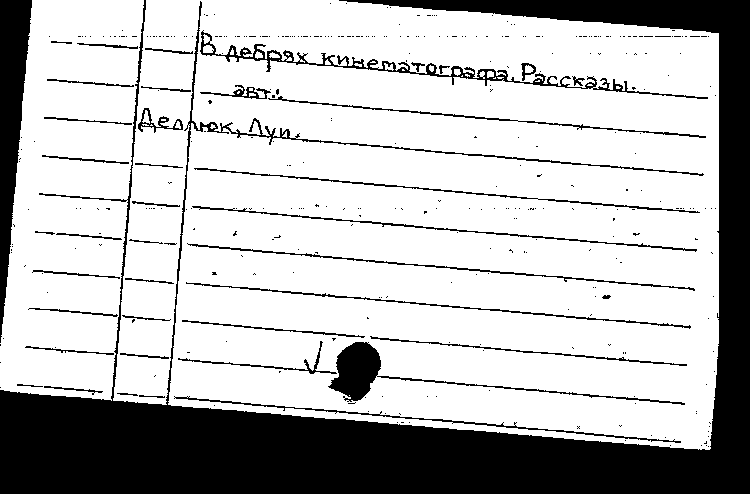 В дебрях кинематографа. Рассказы.
авт.:
Деллюк, Луи.